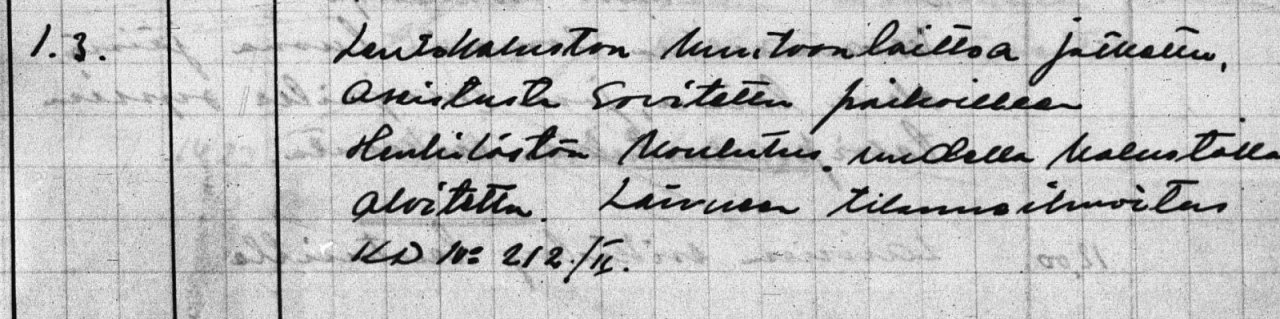 1.3. Lentokaluston kuntoonlaittoa jatkettu.
Aseistusta sovitettu paikoilleen
Henkilöstön koulutus uudella kalustolla
aloitettu. Laivueen tilanneilmoitus
KD No 212/II.